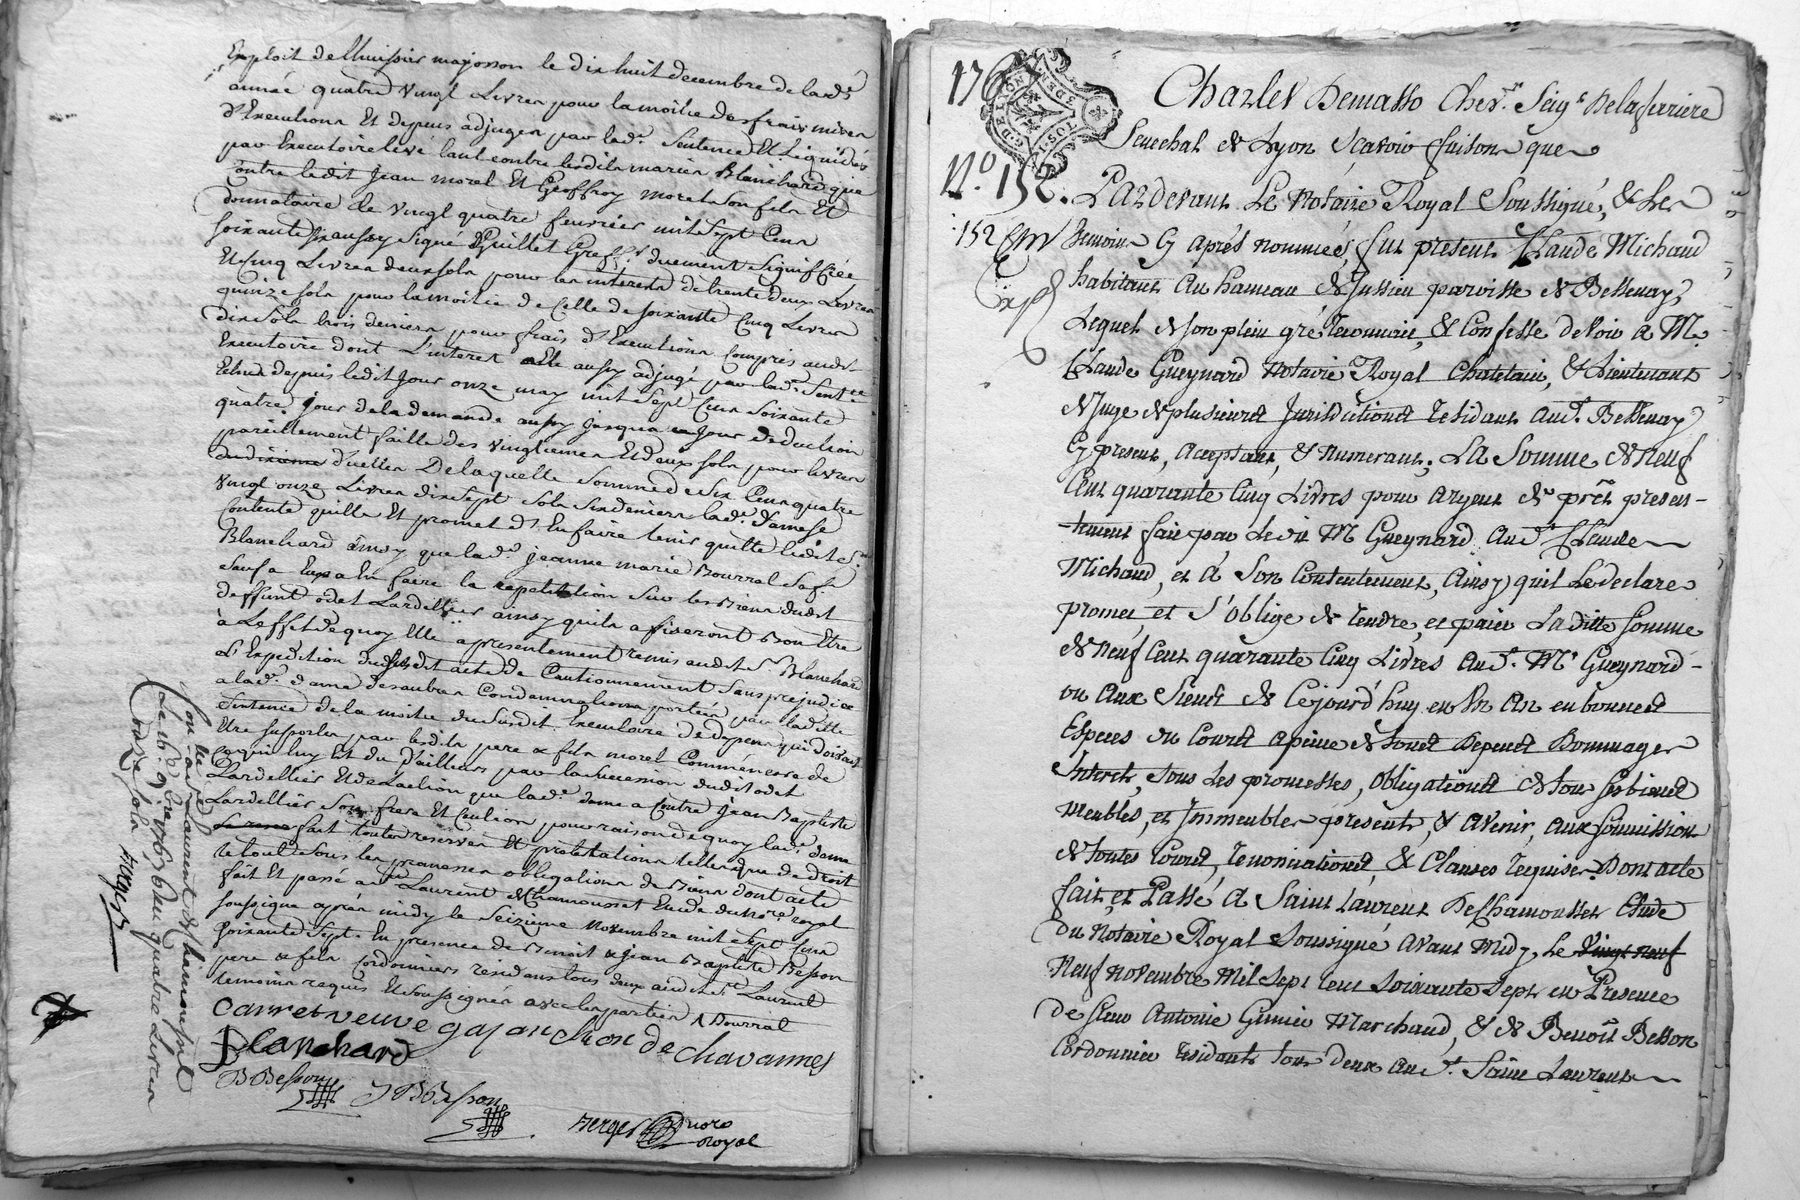 Exploit de l'huissier majosson le dix huit decembre de lad.e
année quatre vingt Livres pour la moitie des frais mises
d'Executions Et depens adjugés par lad.e Sentence Et Liquidés
par Executoire levé tant contre lesdits mariés Blanchard que
contre ledit Jean morel Et Geoffroy morel son fils Et
donnataire le vingt quatre feuvrier mil sept Cens
soixante aussy signé Guillet Greff.er duement signiffiée
Et cinq Livres deux sols pour les interets de trente deux Livres
quinze sols pour la moitie de Celle de soixante Cinq Livres
dix sols trois deniers pour frais d'Executions Compris audit
Executoire dont L'interet a Eté aussy adjugé par lad.e Sent.ce
depuis ledit Jour onze may mil sept Cens soixante
quatre jour de la demande aussy jusqua ce Jour deduction
pareillement faitte des vingtiemes Et deux sols pour livres
d'iceller De laquelle somme de six Cens quatre
vingt onze Livres dix sept sols six deniers lad.e Dame se
Contente quitte Et promet d'En faire tenir quitte ledit S.r
Blanchard ainsy que lad.e jeanne marie Bourrat sa f.e
sauf a Eux a En faire la repetition sur les Biens dudit
deffunt odet Lardellier ainsy quils aviseront Bon Etre
à L'effet de quoy Elle a presentement remis audit S.r Blanchard
L'Expedition dudit acte de Cautionnement sans prejudice
a lad.e dame des autres Condamnations portées par ladite
Sentence de la moitie du susdit Executoire de depens qui doivent
Etre supportés par lesdits pere & fils morel Comme encore de
ce qui luy Est du d'ailleurs par la succession dudit odet
Lardellier Et de L'action que lad.e dame a Contre Jean Baptiste
Lardellier son frere Et Caution pour raison de quoy lad.e dame
fait toutes reserves Et protestations telles que de droit
le tout sous les promesses obligations de Biens dont acte
fait Et passé a S.t Laurent de Chamousset Etude du no.re royal
soussigné après midy le seizieme novembre mil sept Cens
soixante sept En presence de Benoit & Jean Baptiste Besson
pere & fils cordonniers residans tous deux aud. S.t Laurent
temoins requis Et soussignés avec les parties Bourrat
carret veuve gajan chon de chavannes
Blanchard
BBesson JBBesson
Berger no.re royal
Con.lé a S.t Laurent de Chamousset
Le 26 9bre 1767 Reçu quatre Livres
onze sols Berger
1767
G. DE LYON
N.o 152.
152
Exp.
Charles Demasso Chev.r Seig.r Delaferriere
Senechal de Lyon Scavoir faisons que
Pardevant Le Notaire Royal Soussigné, & Les
temoins Cy après nommées, fut present Claude Michaud
habitant au hameau de Jussieu paroisse de Bessenay
Lequel de son plein gré reconnoit, & Confesse devoir a M.
Claude Gueynard Notaire Royal Chatelain, & Lieutenant
de Juge de plusieurs Jurisdictions residant aud.t Bessenay
Cy present, acceptant, & numerant, La Somme de Neuf
Cent quarante Cinq Livres pour argent de prêt presen-
tement fait par ledit M Gueynard aud.t Claude
Michaud, et à Son Contentement, ainsy quil Le declare
promet et S'oblige de rendre, et paier Laditte Somme
de Neuf Cent quarante Cinq Livres aud.t M.r Gueynard
ou aux Siens de Cejourd'huy en un an en bonnes
Especes du Cours a peine de tous Depens Dommages
Interets, sous les promesses, obligations de tous ses biens
meubles, et Immeubles presents, & avenir, aux Soumissions
de toutes Cours, renonciations & Clauses requises. Dont acte
fait, et Passé à Saint Laurent De Chamousset Etude
Du Notaire Royal Soussigné avant midy, Le vingt neuf
Neuf novembre Mil Sept cent Soixante Sept en Presence
de Sieur Antoine Gimier Marchand, & de Benoît Besson
Cordonnier residants tous Deux aud.t Saint Laurent